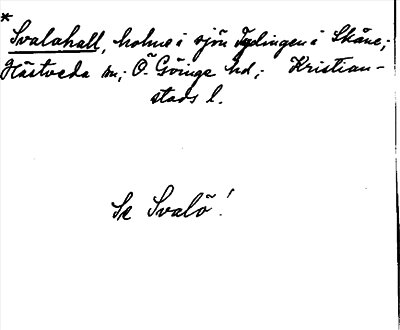 *
Svalahall, holme i sjön Tydingen i Skåne;
Hästveda sn; Ö. Göinge hd; Kristian-
stads l.
Se Svalö!